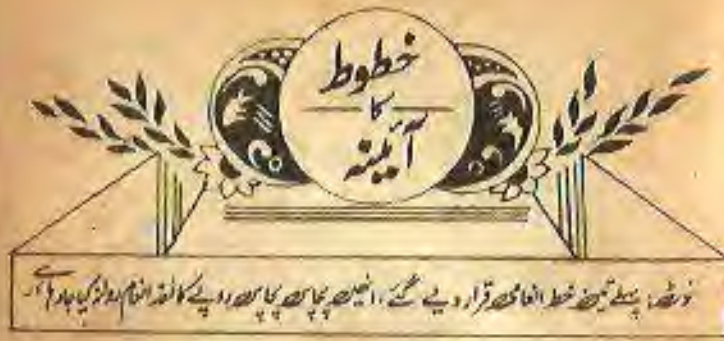 خطوط
کا
آئینہ
نوٹ: پہلے تین خط انعامی قرار دیے گئے، انھیں پچاس پچاس روپے کا نقد انعام روانہ کیا جا رہا ہے۔